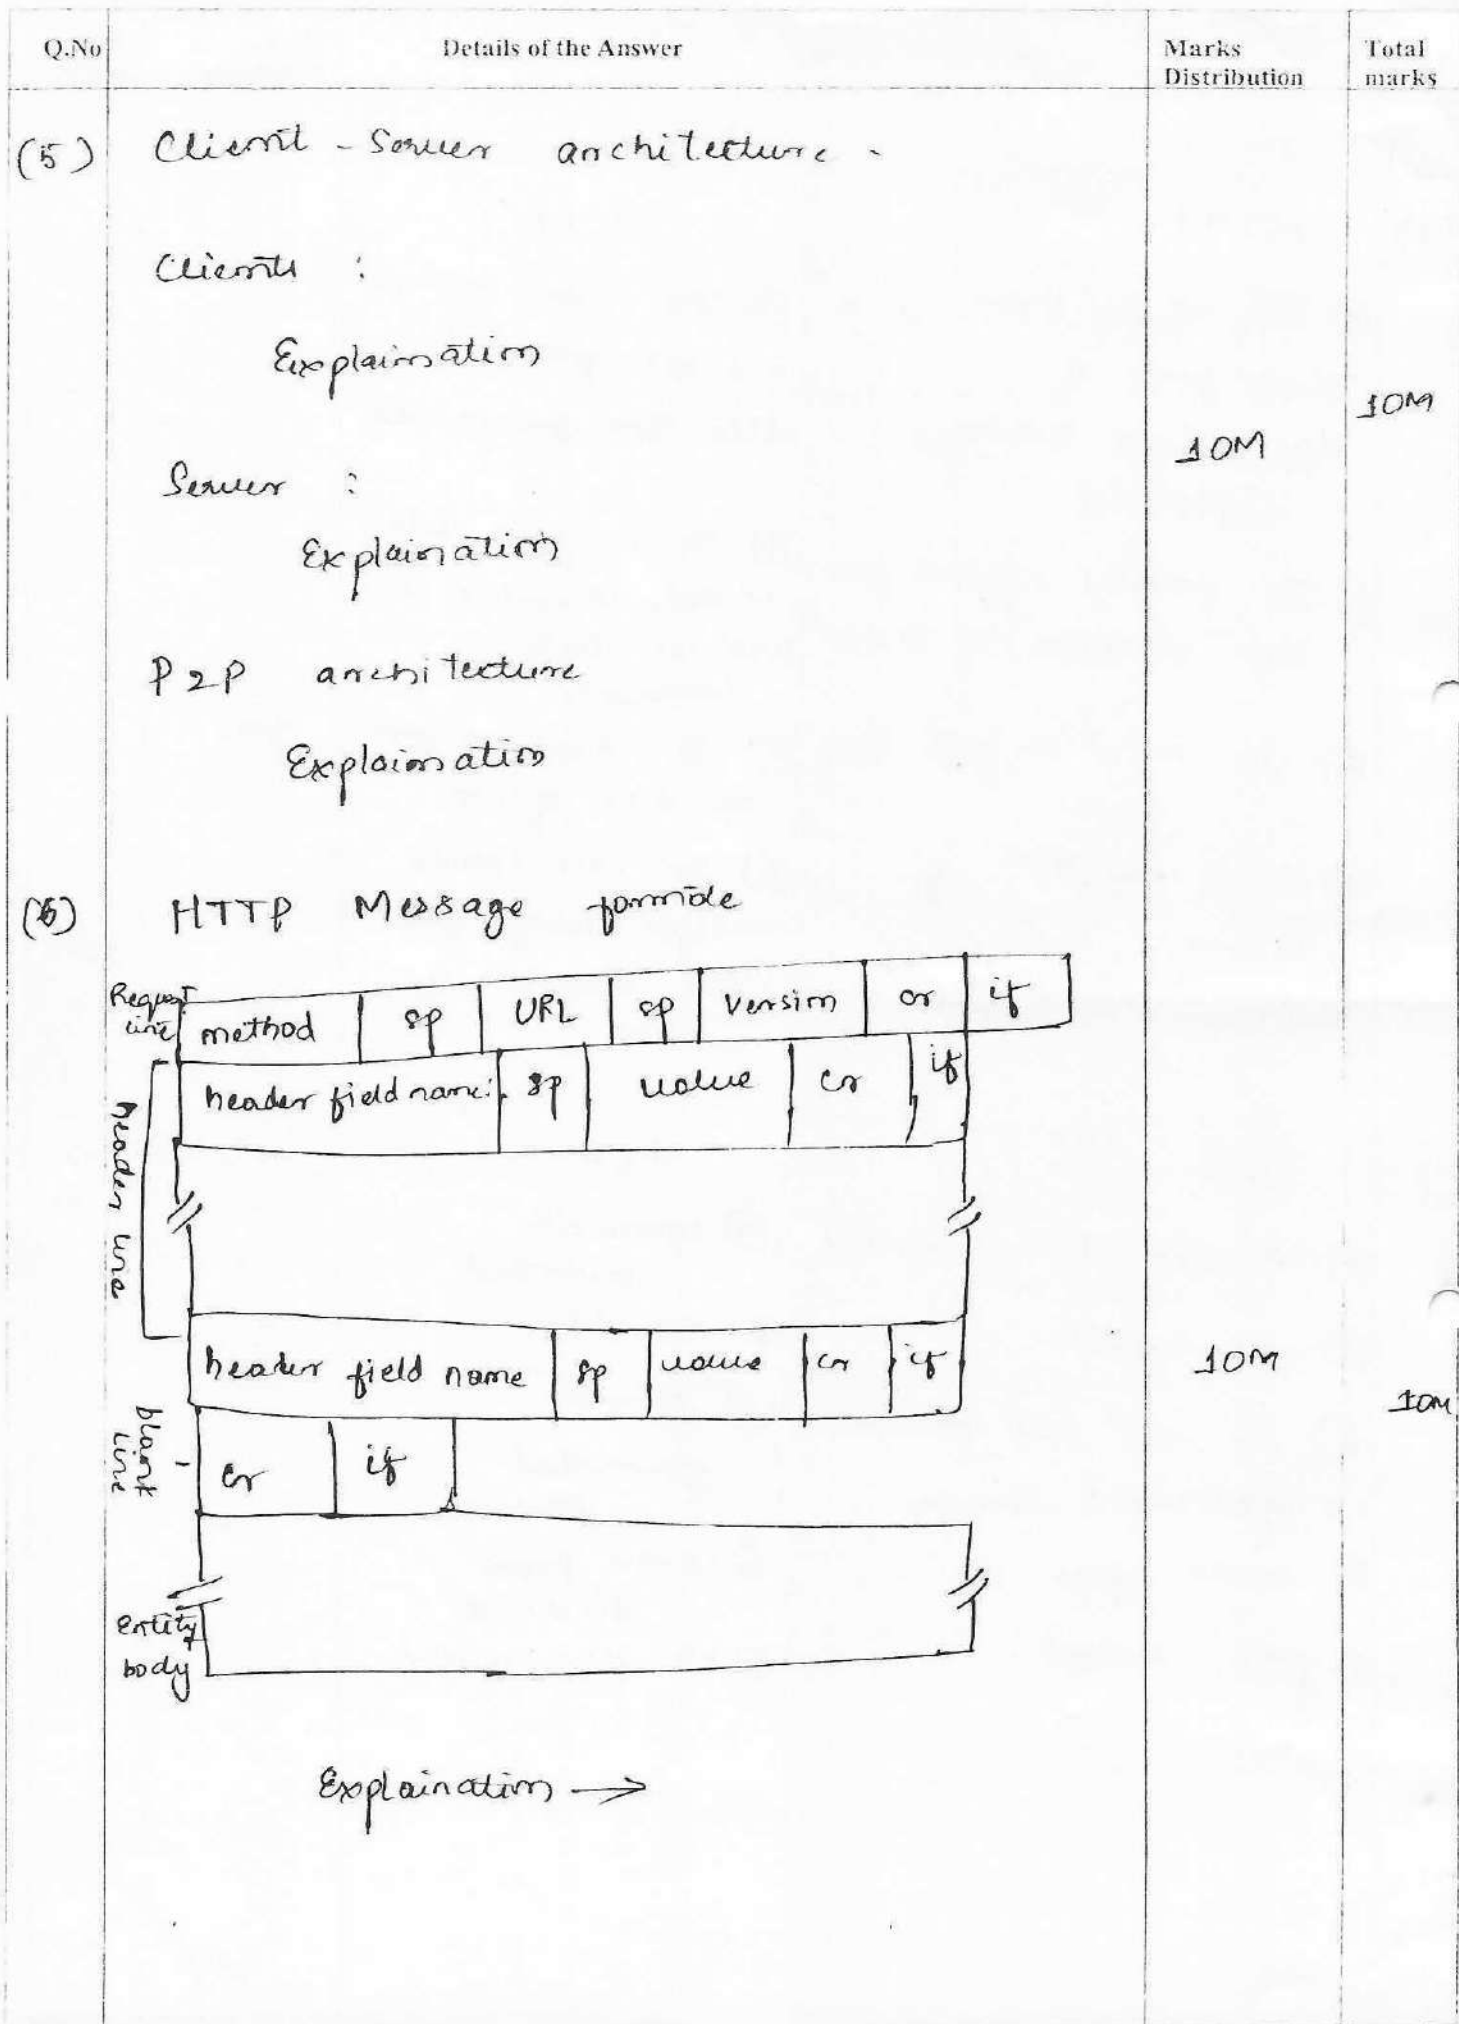 Q.No Details of the Answer Marks Distribution Total marks
(5) Client - Server architecture -
Clients :
Explaination
10M
10M
Server :
Explaination
P2P architecture
Explaination
(6) HTTP Message formate
Request line method sp URL sp Version cr lf
header field name: sp value cr lf
header line
header field name sp value cr lf
10M
10M
blank line - cr lf
Entity body
Explaination →